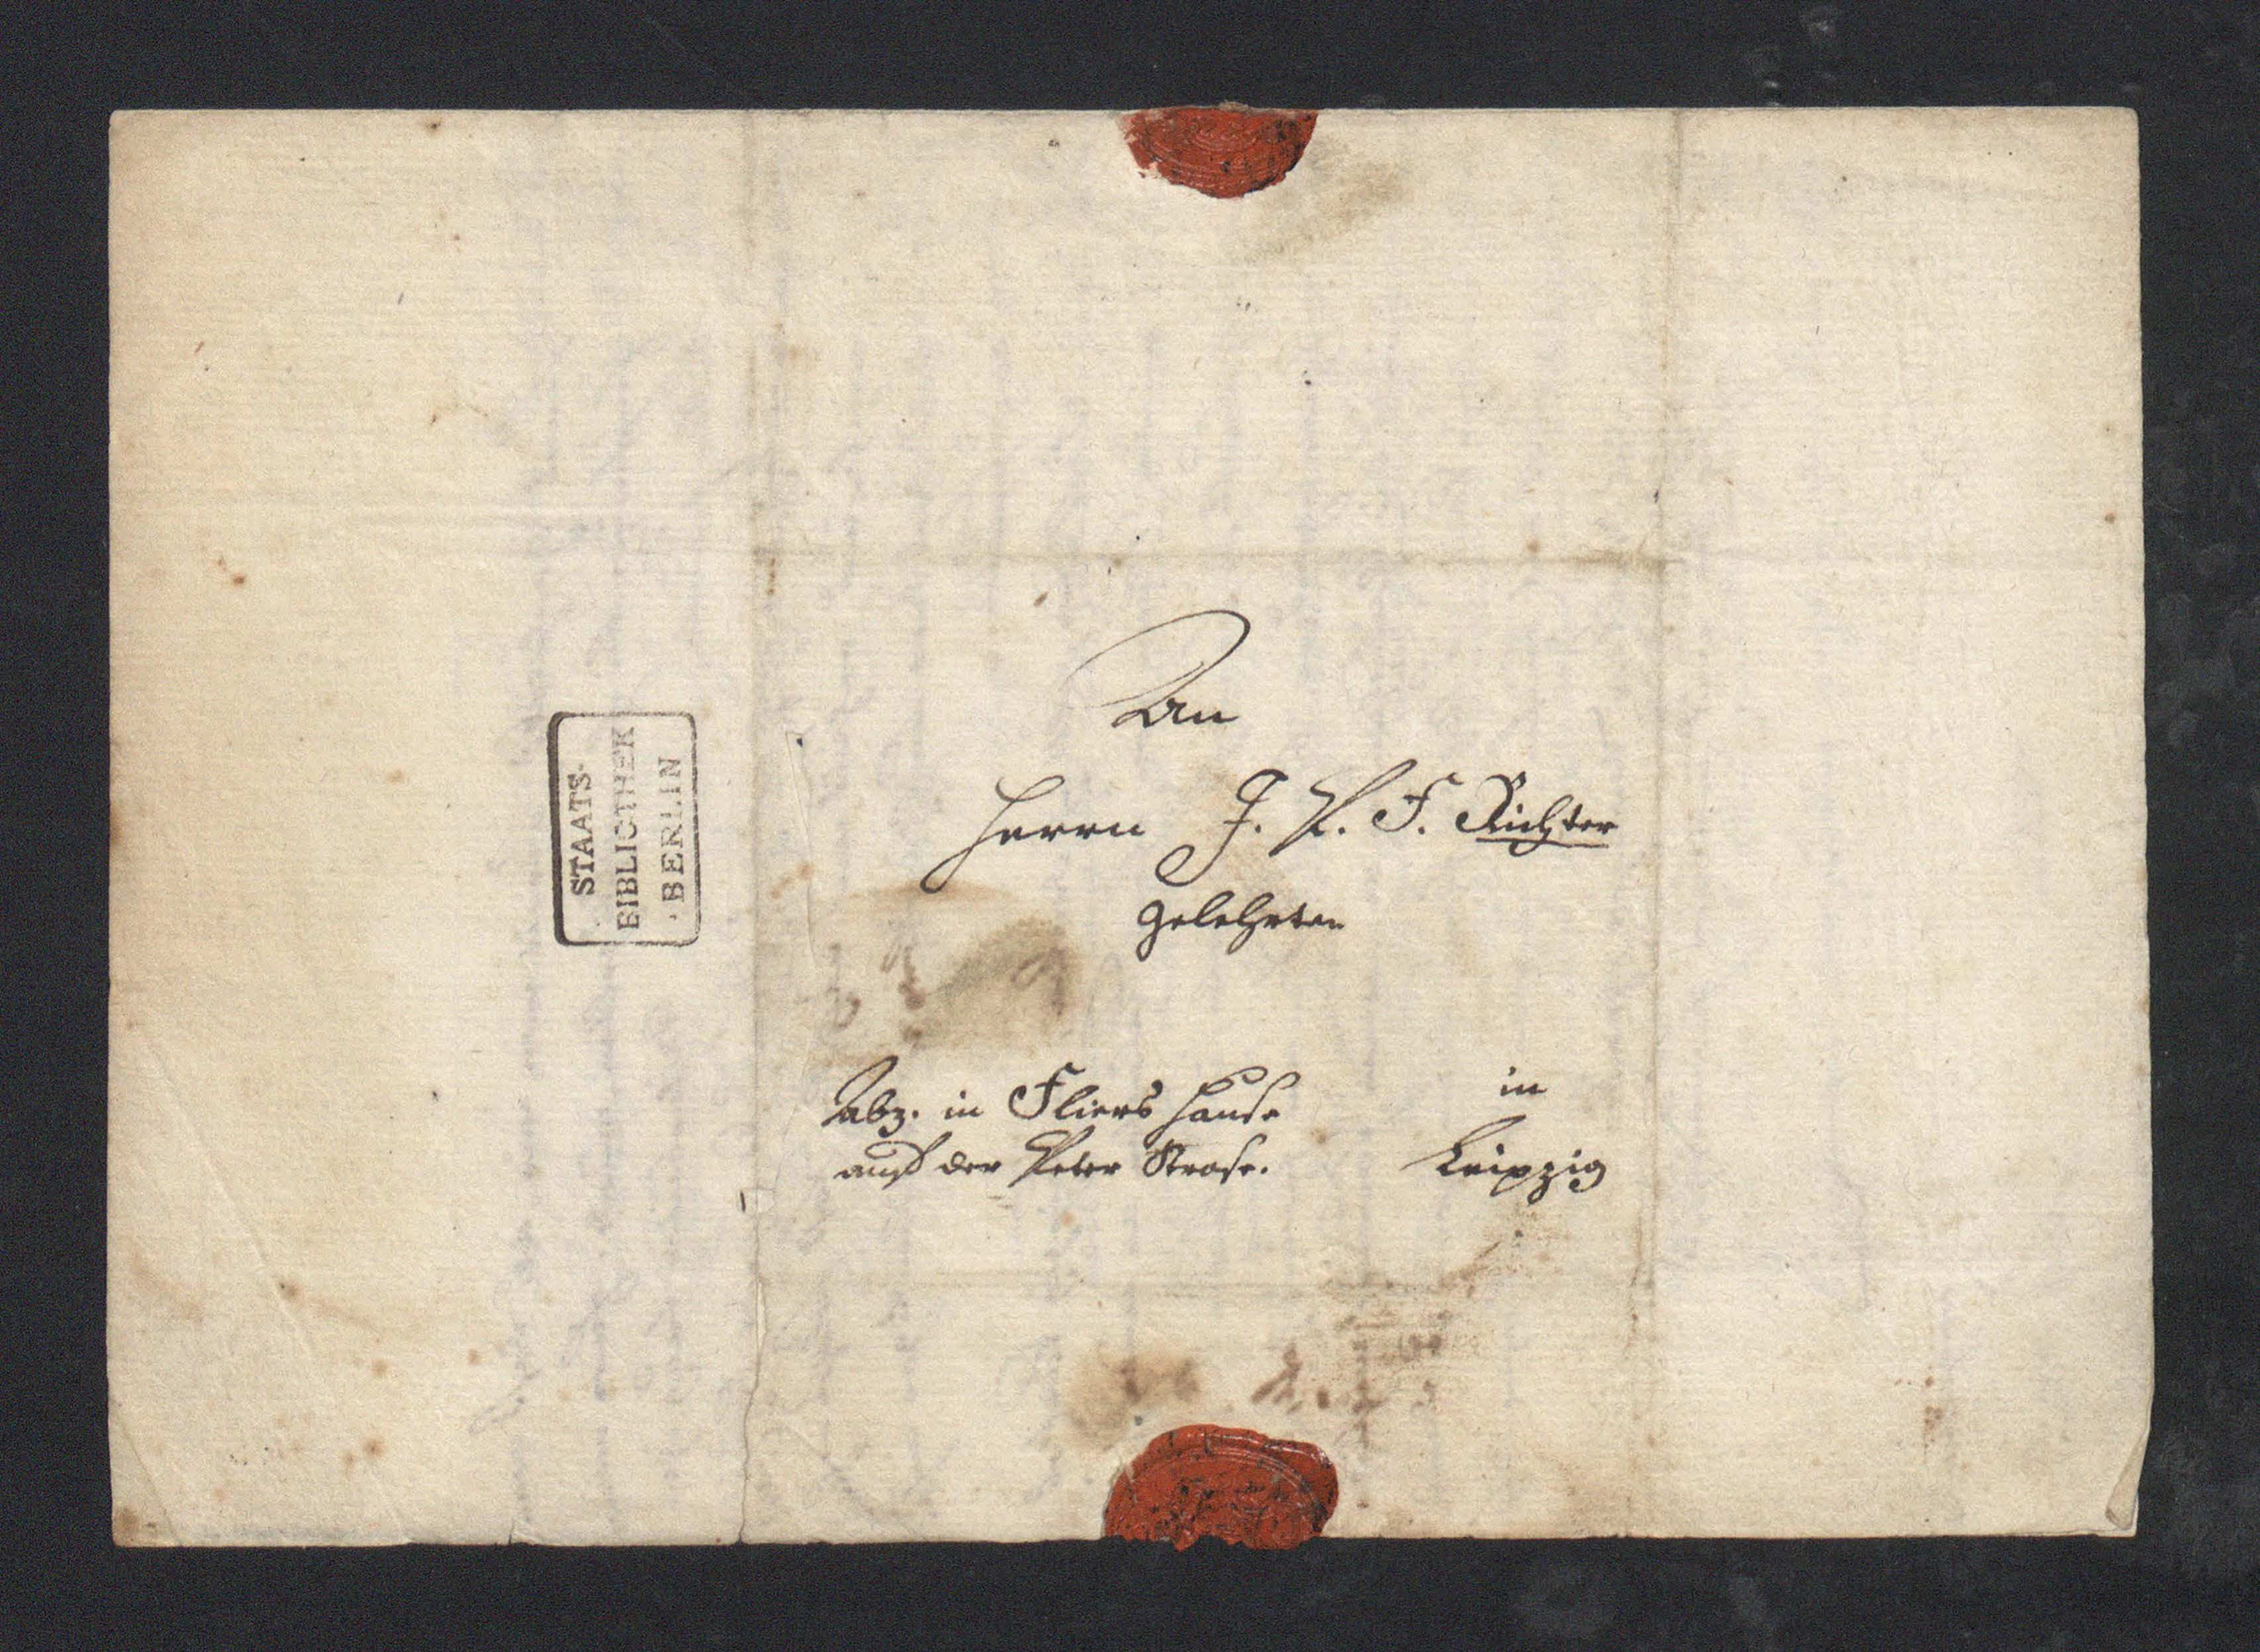 An
Herrn J. P. F. Richter
Gelehrten
Abz. in Fliers Hause
auf der Peter Strase.
in
Leipzig
STAATS-
BIBLIOTHEK
· BERLIN